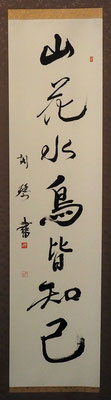 山花水鳥皆知己